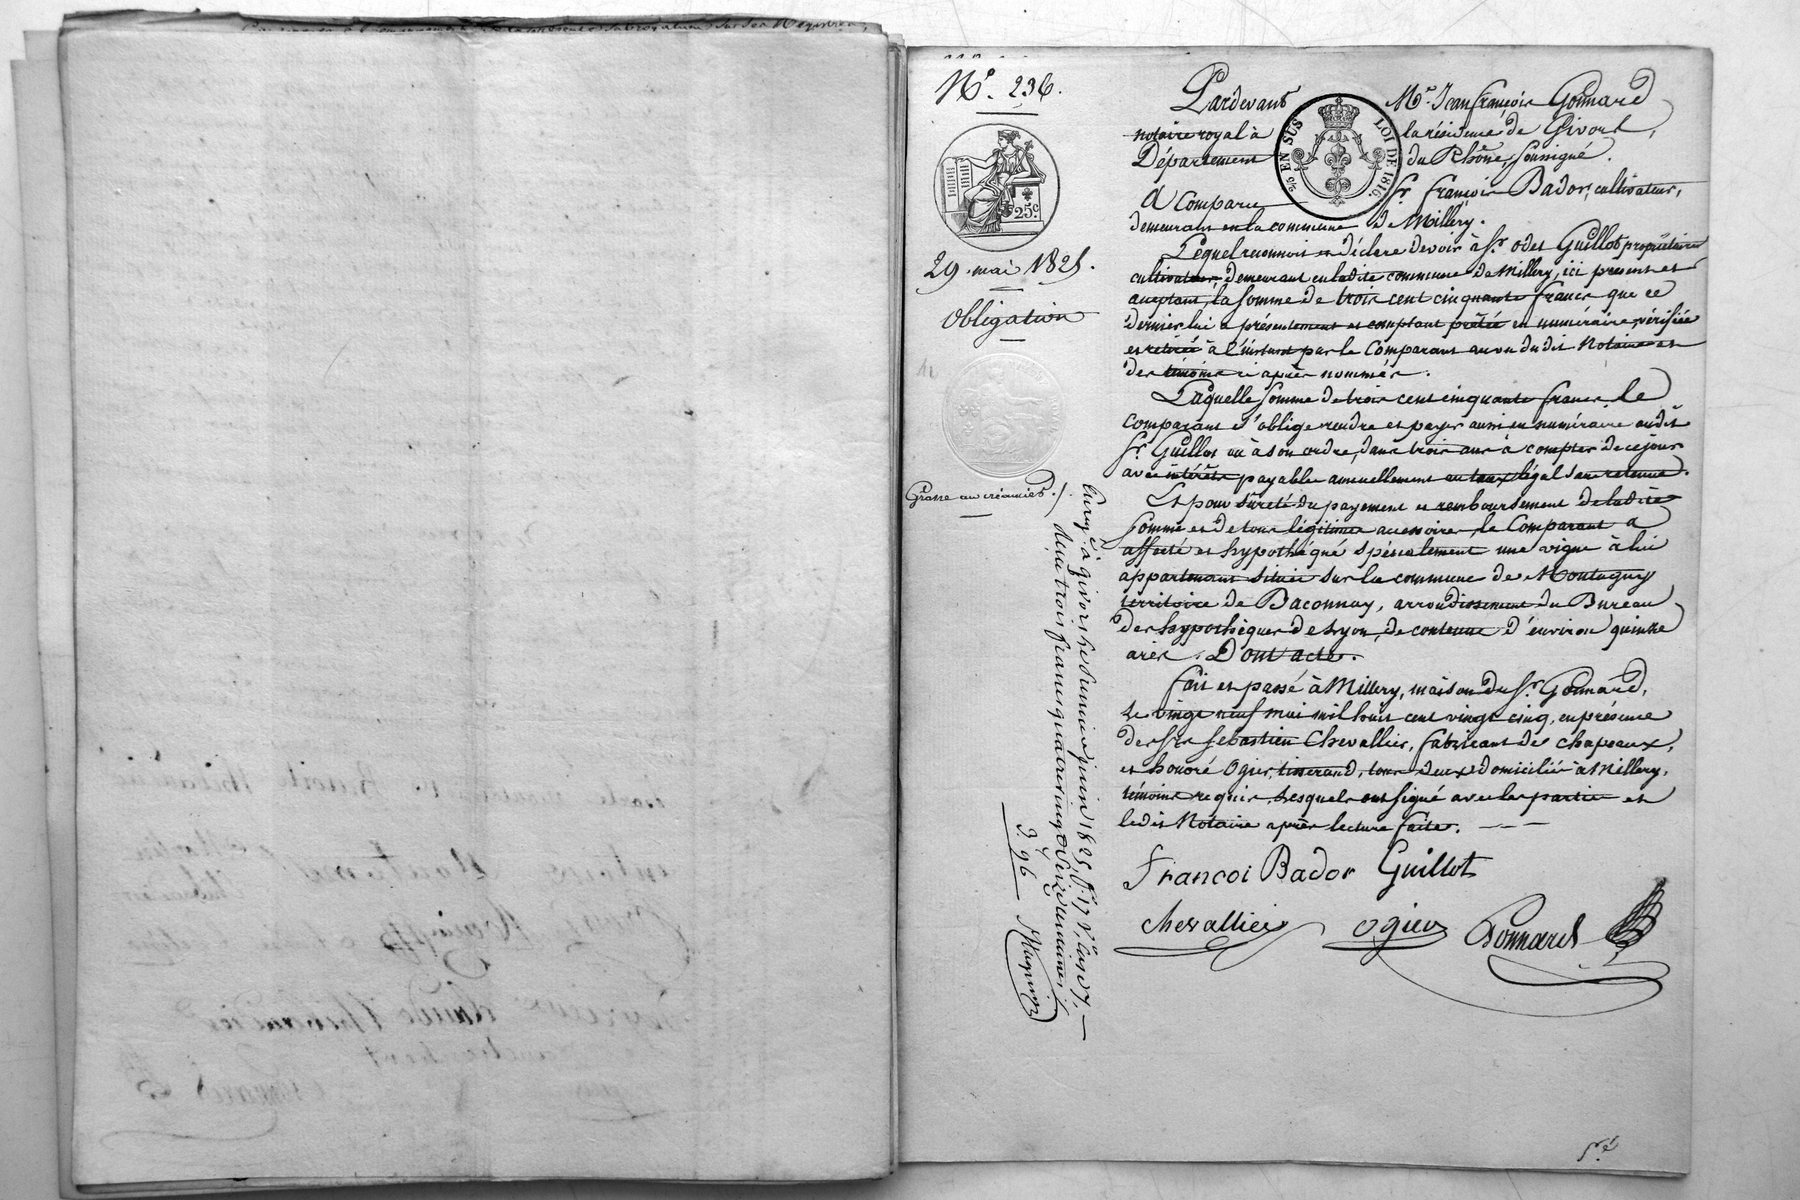 N.° 236.
25c.
29 mai 1825.
Obligation
Grosse au créancier
Pardevant Me. Jean françois Gonnard
notaire royal à la résidence de Givors,
Département du Rhône, soussigné.
EN SUS LOI DE 1816.
A Comparu Sr. françois Bador, cultivateur,
demeurant en la commune de Millery.
Lequel reconnoit et déclare devoir à Sr. Odet Guillot propriétaire
cultivateur, demeurant en ladite commune de Millery, ici présent et
acceptant, la somme de trois cent cinquante francs que ce
dernier lui a présentement et comptant prêtée en numéraire, vérifiée
et retirée à l'instant par le Comparant au vu dudit Notaire et
des témoins ci après nommés.
Laquelle somme de trois cent cinquante francs, le
comparant s'oblige rendre et payer aussi en numéraire audit
Sr. Guillot ou à son ordre, dans trois ans à compter de ce jour
avec intérêts payable annuellement au taux légal sans retenue.
Et pour sûreté du payement et remboursement de ladite
somme et de tous légitimes accessoires, le Comparant a
affecté et hypothéqué spécialement une vigne à lui
appartenant située sur la commune de Montagny
territoire de Baconnay, arrondissement du Bureau
des hypothèques de Lyon, de contenue d'environ quinze
ares. Dont acte.
fait et passé à Millery, maison du Sr. Gonnard,
le vingt neuf mai mil huit cent vingt cinq, en présence
des Srs Sébastien Chevallier, fabricant de chapeaux,
et honoré Ogier, tisserand, tous deux domiciliés à Millery,
témoins requis, lesquels ont signé avec les parties et
ledit Notaire après lecture faite.
Francoi Bador Guillot
chevallier ogier Gonnard
Enreg.é à givors le juin 1825, f.°
reçu trois francs quatre vingt seize centimes
3. 96